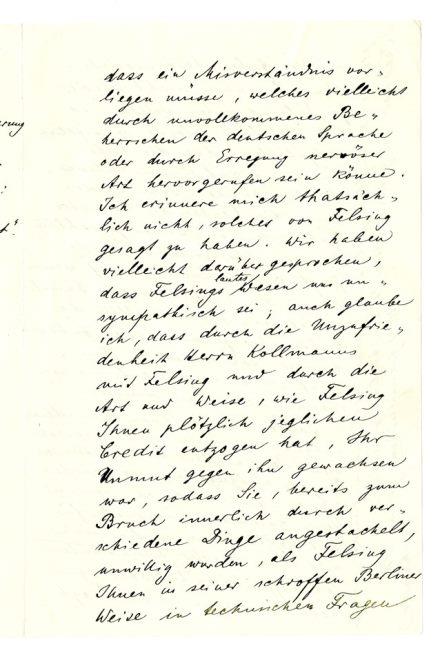 dass ein Misverständnis vor-
liegen müsse, welches vielleicht
durch unvollkommenes Be-
herrschen der deutschen Sprache
oder durch Erregung nervöser
Art hervorgerufen sein könne.
Ich erinnere mich thatsäch-
lich nicht, solches von Felsing
gesagt zu haben. Wir haben
vielleicht darüber gesprochen,
lautes
dass Felsings Wesen uns un-
sympathisch sei; auch glaube
ich, dass durch die Unzufrie-
denheit Herrn Kollmanns
mit Felsing und durch die
Art und Weise, wie Felsing
Ihnen plötzlich jeglichen
Credit entzogen hat, Ihr
Unmut gegen ihn gewachsen
war, sodass Sie, bereits zum
Bruch innerlich durch ver-
schiedene Dinge angestachelt,
unwillig wurden, als Felsing
Ihnen in seiner schroffen Berliner
Weise in technischen Fragen